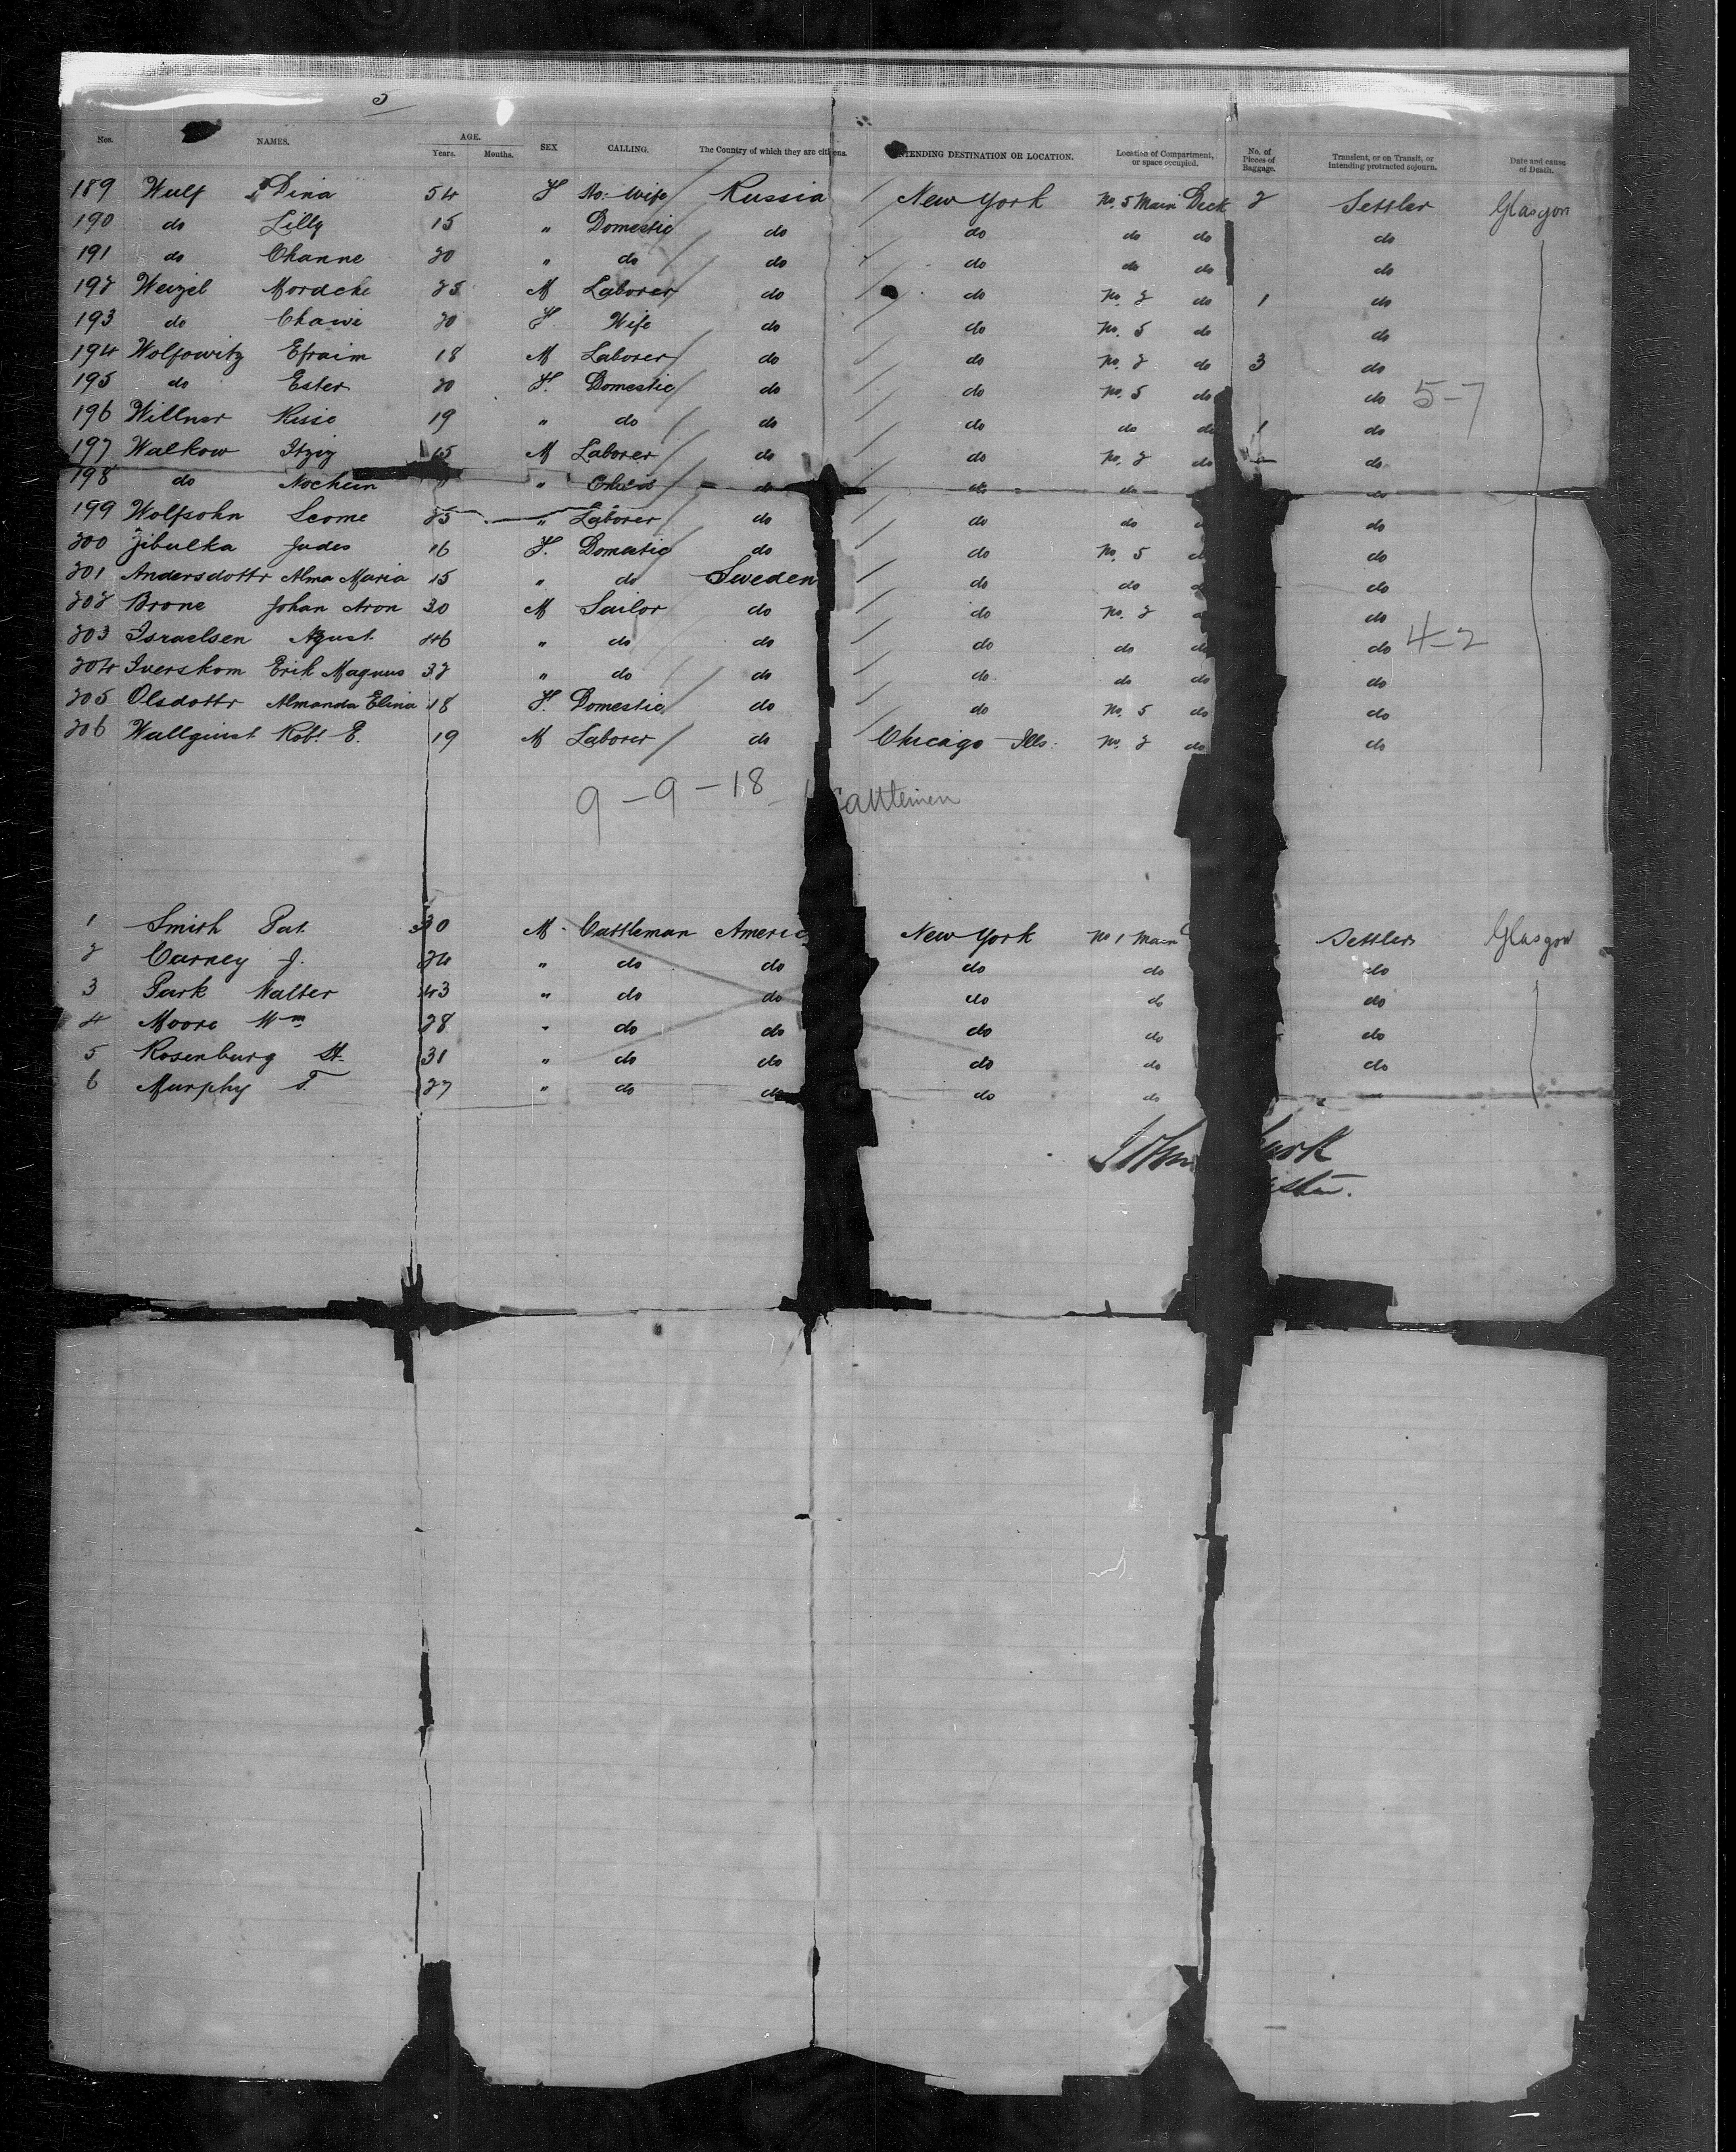 5
Nos. NAMES. AGE. Years. Months. SEX CALLING. The Country of which they are citizens. INTENDING DESTINATION OR LOCATION. Location of Compartment, or space occupied. No. of Pieces of Baggage. Transient, or on Transit, or intending protracted sojourn. Date and cause of Death.
189 Wulf Dina 54 F Ho: Wife Russia New York No. 5 Main Deck 2 Settler Glasgow
190 do Lilly 15 " Domestic do do do do do
191 do Channe 20 " do do do do do do
192 Weizel Mordche 25 M Laborer do do No. 2 do 1 do
193 do Chawe 20 F. Wife do do No. 5 do do
194 Wolfowitz Efraim 18 M Laborer do do No. 2 do 3 do
195 do Ester 20 F. Domestic do do No. 5 do do 5-7
196 Willner Risie 19 " do do do do do 1 do
197 Walkow Itziz 15 M Laborer do do No. 2 do do
198 do Nochem " Child do do do do
199 Wolfsohn Leome 25 " Laborer do do do do
200 Zibulka Judes 16 F. Domestic do do No. 5 do
201 Andersdottr Alma Maria 15 " do Sweden do do do
202 Brone Johan Aron 30 M Sailor do do No. 2 do
203 Israelsen Agust 46 " do do do do do do 4-2
204 Iverskom Erik Magnus 32 " do do do do do do
205 Olsdottr Almanda Elina 18 F. Domestic do do No. 5 do do
206 Wallquist Robt. E. 19 M Laborer do Chicago Ills. No. 2 do do
9-9-18 Cattlemen
1 Smith Pat. 30 M Cattleman Americ New York No 1 Main Settler Glasgow
2 Carney J. 24 " do do do do do
3 Park Walter 43 " do do do do do
4 Moore Wm. 28 " do do do do do
5 Rosenburg St. 31 " do do do do do
6 Murphy T. 27 " do do do do
John